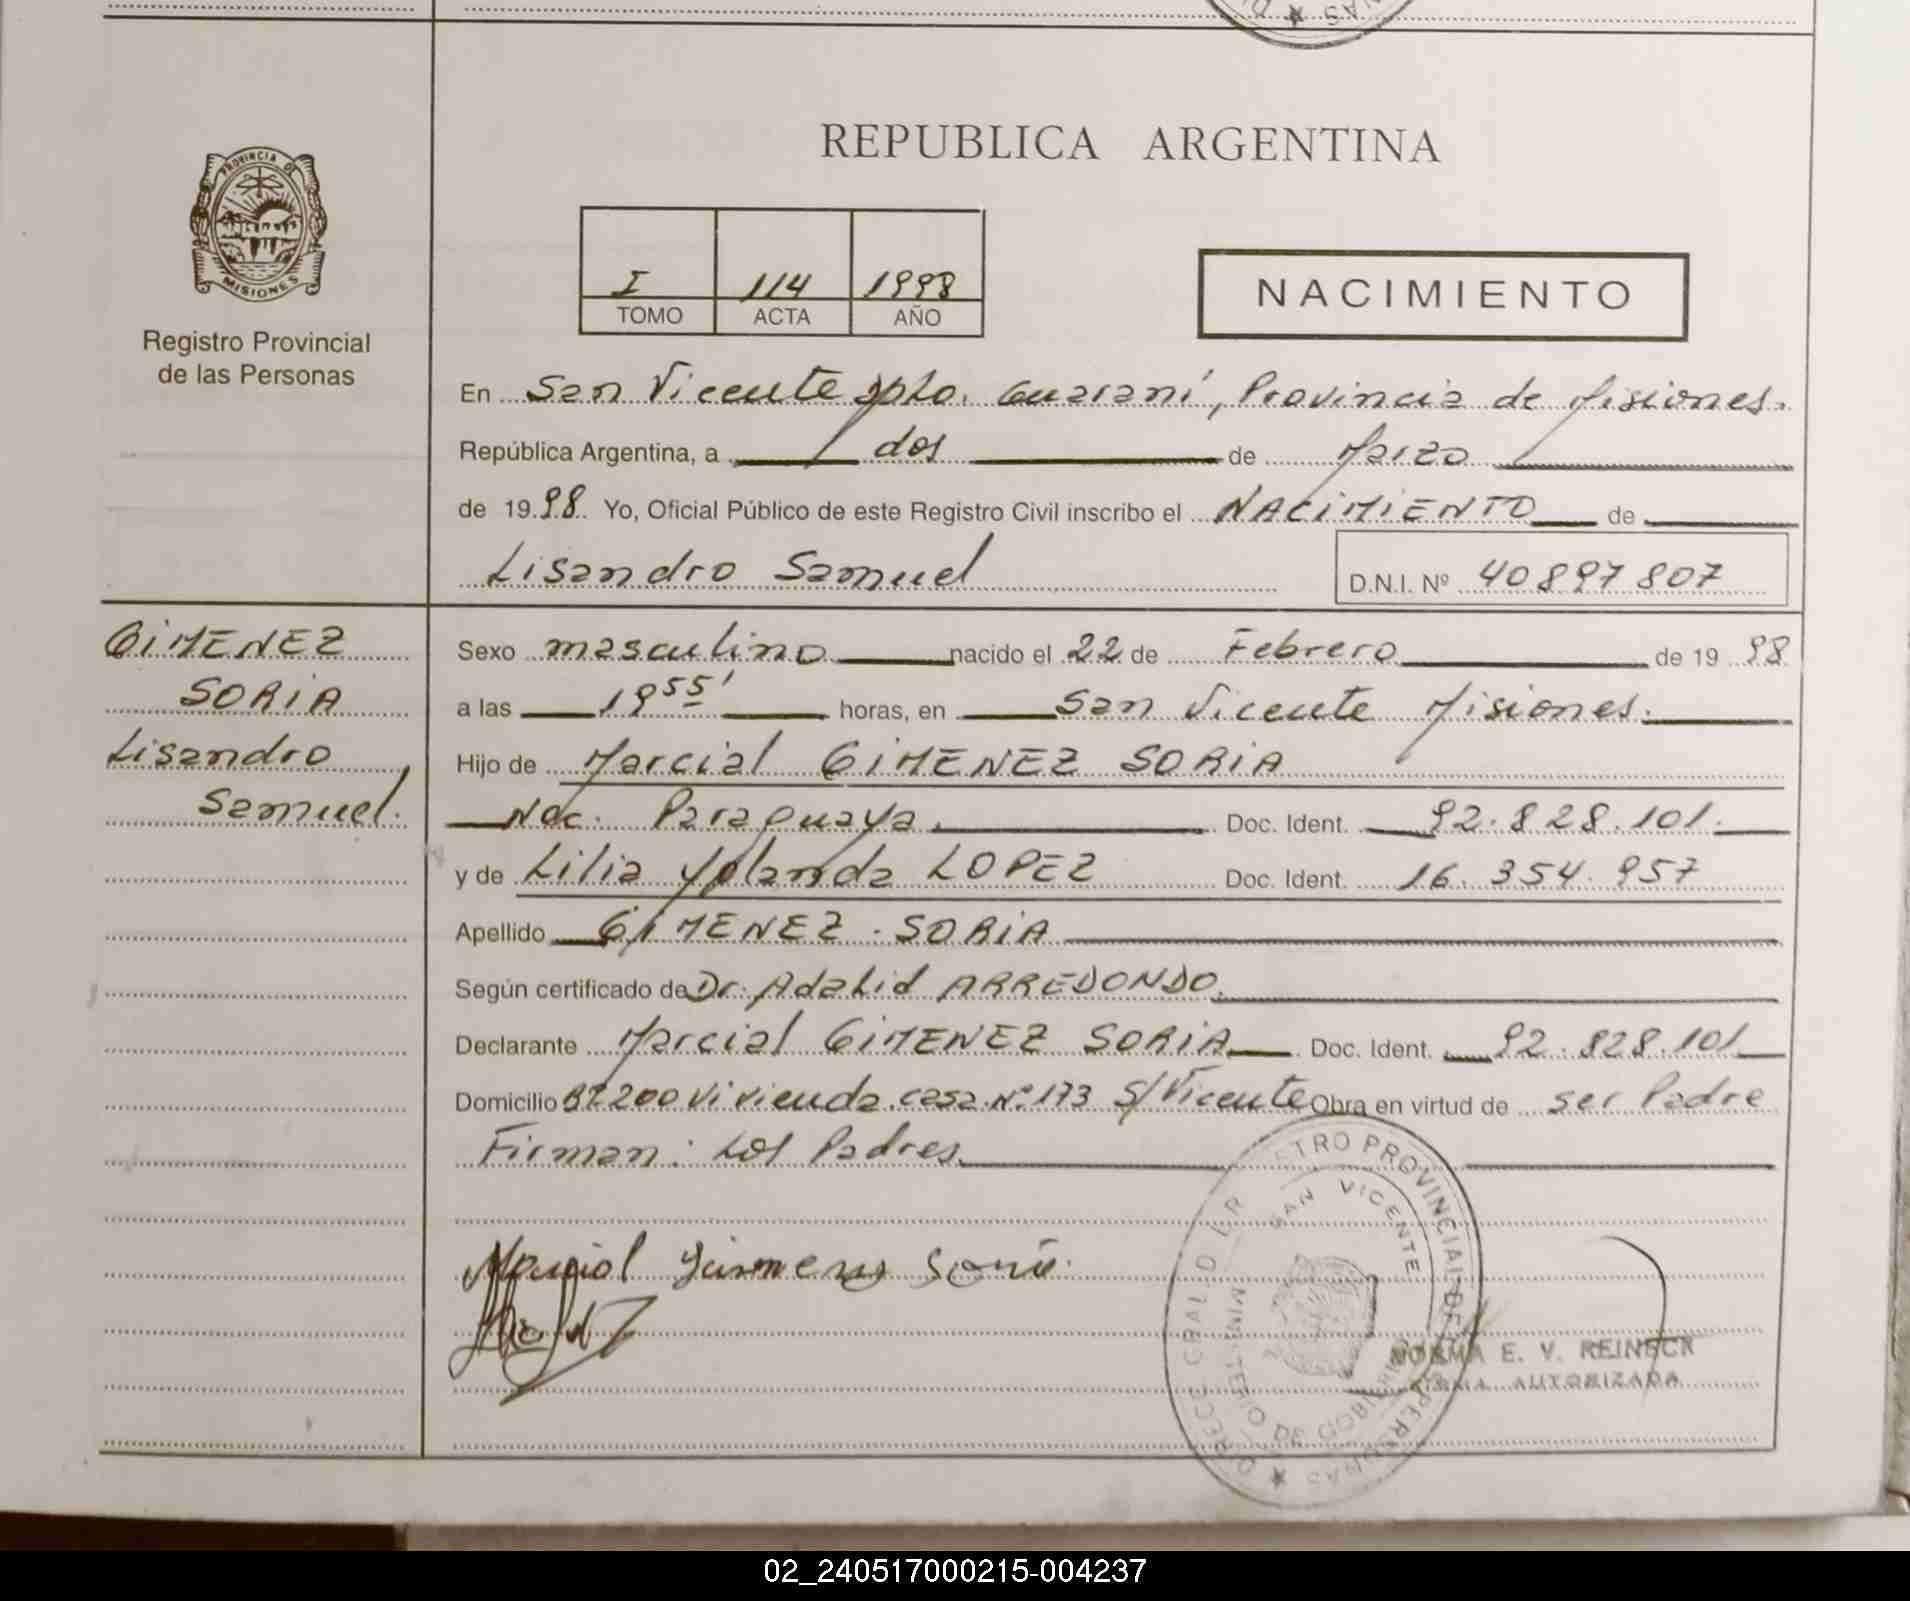 REPUBLICA ARGENTINA
PROVINCIA DE
MISIONES
Registro Provincial
de las Personas
I 114 1998
TOMO ACTA AÑO
NACIMIENTO
En San Vicente Dpto. Guaraní, Provincia de Misiones.
República Argentina, a dos de Marzo
de 1998 Yo, Oficial Público de este Registro Civil inscribo el NACIMIENTO de
Lisandro Samuel D.N.I. Nº 40897807
GIMENEZ
SORIA
Lisandro
Samuel.
Sexo masculino nacido el 22 de Febrero de 1998
a las 19 55' horas, en San Vicente Misiones.
Hijo de Marcial GIMENEZ SORIA
Nac. Paraguaya. Doc. Ident. 92.828.101.
y de Lilia Yolanda LOPEZ Doc. Ident. 16.354.957
Apellido GIMENEZ SORIA
Según certificado de Dr. Adalid ARREDONDO.
Declarante Marcial GIMENEZ SORIA Doc. Ident. 92.828.101
Domicilio Bº 200 vivienda casa Nº 173 S/Vicente Obra en virtud de ser Padre
Firman: Los Padres.
Marcial Gimenez Soria.
SAN VICENTE
MINISTERIO DE GOBIERNO
NORMA E. V. REINECK
FIRMA AUTORIZADA
02_240517000215-004237